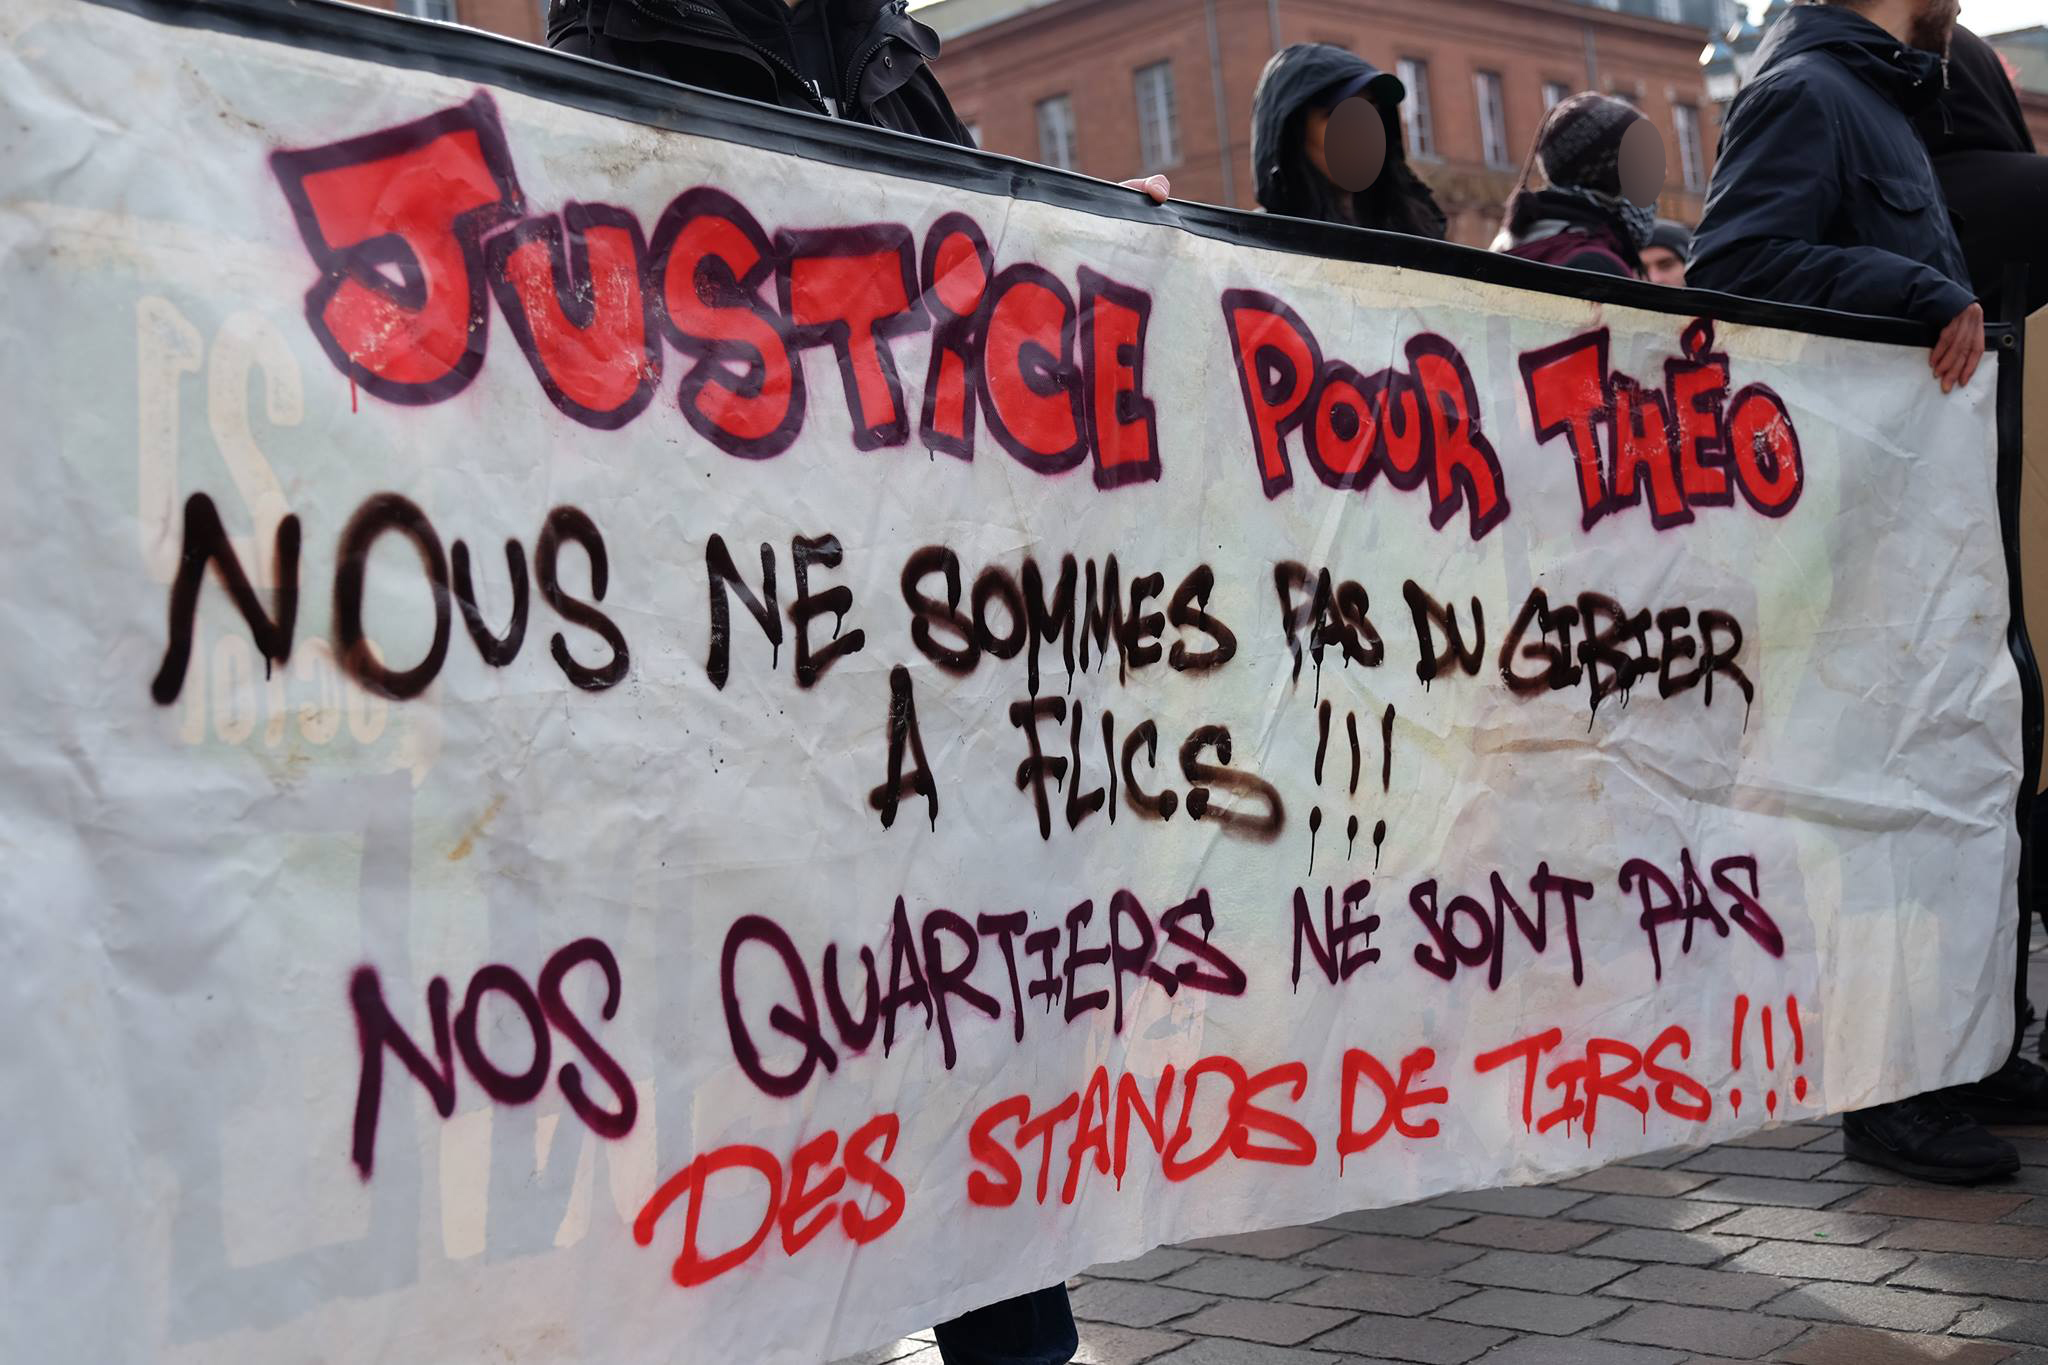 JUSTiCE POUR THÉO
NOUS NE SOMMES PAS DU GIBIER
A FLICS !!!
NOS QUARTIERS NE SONT PAS
DES STANDS DE TIRS !!!